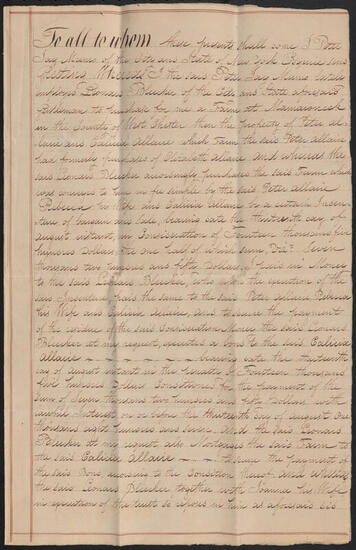 To all to whom these presents shall come I Peter
Jay Munro of the City and State of New York Esquire send
Greeting Whereas I the said Peter Jay Munro lately
employed Leonard Bleecker of the City and State aforesaid
Gentleman to purchase for me a Farm at Mamaroneck
in the County of West Chester then the property of Peter al-
laire and Calicia allaire which Farm the said Peter allaire
had formerly purchased of Elizabeth allaire and whereas the
said Leonard Bleecker accordingly purchased the said Farm which
was conveyed to him in fee simple by the said Peter allaire
Rebecca his Wife and Calicia allaire by a certain Inden-
ture of bargain and sale, bearing date the thirteenth day of
august instant, in Consideration of Fourteen thousand five
hundred Dollars, the one half of which sum, Viz. Seven
thousand two hundred and fifty Dollars, I paid in Money
to the said Leonard Bleecker, who upon the execution of the
said Indenture, paid the same to the said Peter allaire Rebecca
his Wife and Calicia allaire, and to secure the payment
of the residue of the said Consideration Money the said Leonard
Bleecker at my request, executed a bond to the said Calicia
Allaire bearing date the thirteenth
day of august instant in the Penalty of Fourteen thousand
five hundred Dollars Conditioned for the payment of the
sum of Seven thousand two hundred and fifty Dollars with
lawful Interest on or before the thirteenth day of august One
thousand eight hundred and seven. And the said Leonard
Bleecker at my request also Mortgaged the said Farm to
the said Calicia Allaire to secure the payment of
the said Bond, according to the Condition thereof And Whereas
the said Leonard Bleecker together with Joanna his Wife
in execution of the trust so reposed in him as aforesaid did